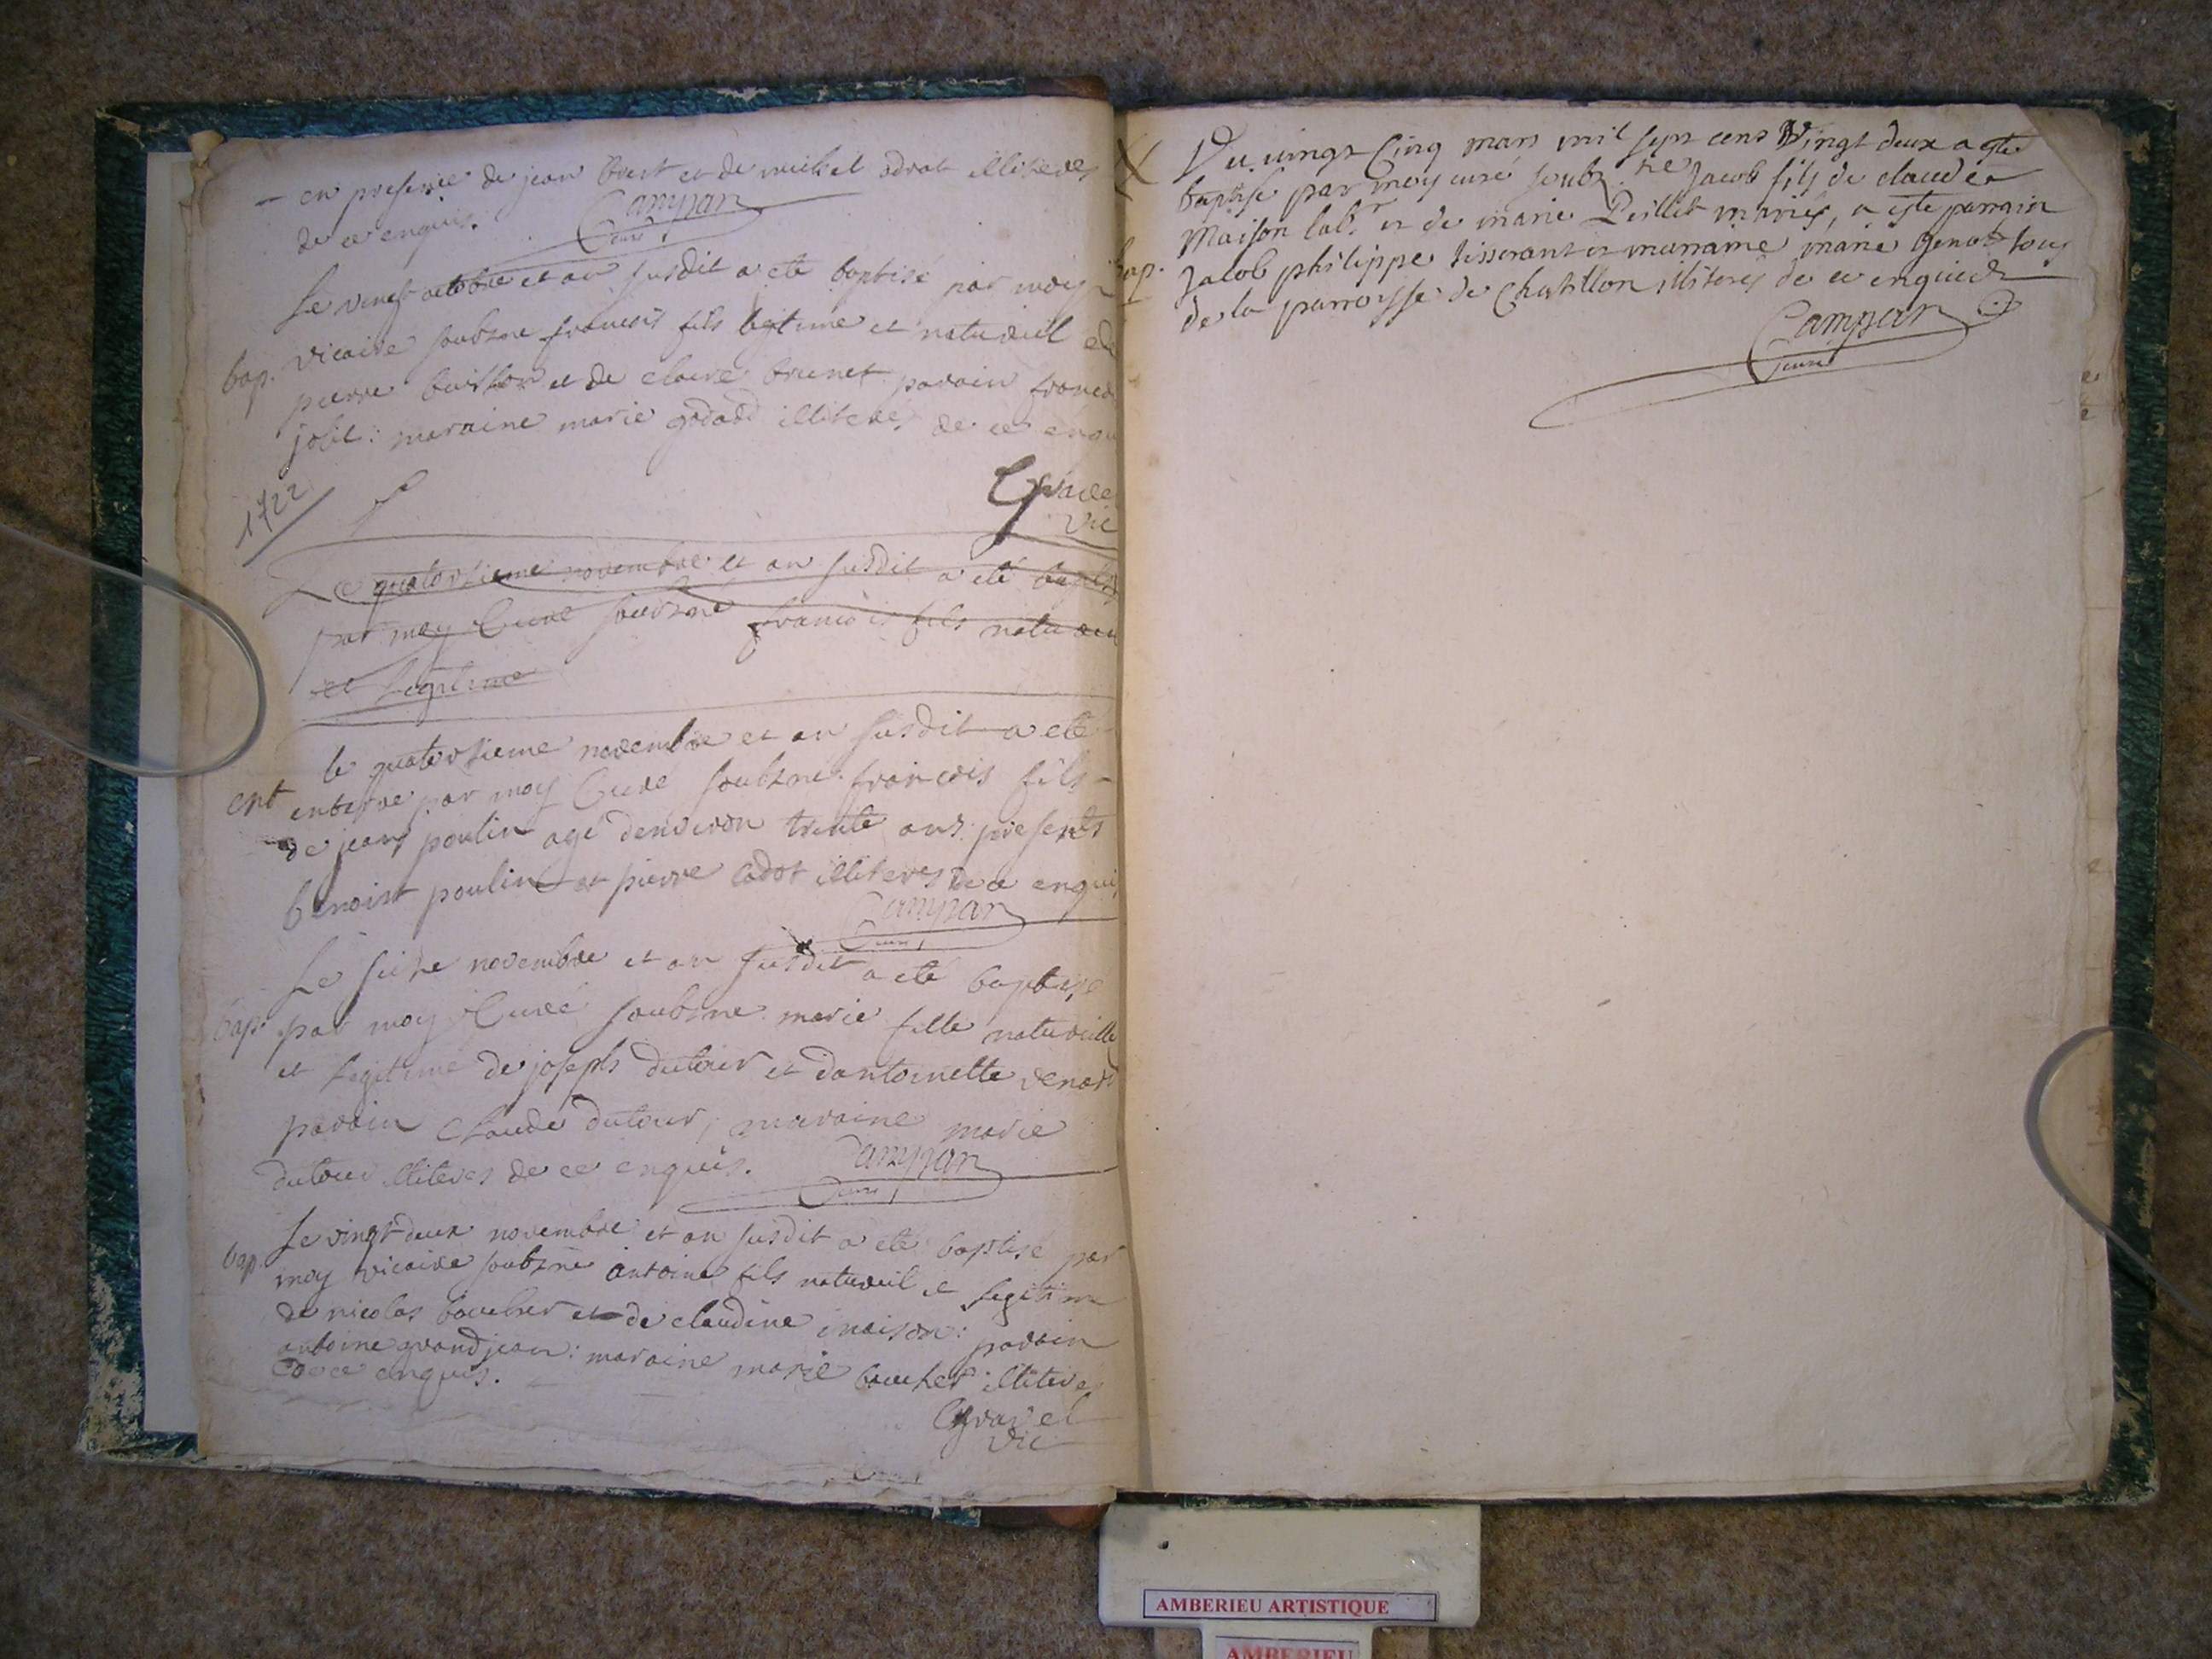 en presence de jean et de michel illiteres
de ce enquis. Campan
Curé
Le vingt octobre et an susdit a eté baptisé par moy
bap. vicaire soubzné francois fils legitime et natureil de
pierre buisson et de claire brunet parain francois
jolit: maraine marie godard illiteres de ce enqu
1722
Gravel
vic
Le quatorsieme novembre et an susdit a eté baptisé
par moy Curé soubzné francois fils natureil
et legitime
le quatorsieme novembre et an susdit a eté
ent enterré par moy Curé soubzné francois fils
de jean poulin agé denviron trente ans: presents
benoist poulin et pierre cadot illiteres de ce enquis
Campan
Curé
Le seize novembre et an susdit a eté baptisé
bap. par moy Curé soubzné marie fille natureille
et legitime de joseph dutour et dantoinette
parain Claude dutour, maraine marie
dutour illiteres de ce enquis. Campan
Curé
Le vingt deux novembre et an susdit a eté baptisé par
bap. moy vicaire soubzné antoine fils natureil et legitime
de nicolas boucher et de claudine maison: parain
antoine grandjean: maraine marie boucher illiteres
de ce enquis.
Gravel
vic
Du vingt Cinq mars mil sept cens Vingt deux a esté
baptisé par moy curé soubz.né Jacob fils de claude
Maison lab.r et de marie Peillet mariés, a esté parrain
bap. Jacob philippe tisserant et marraine marie genot tous
de la parroisse de Chatillon illiterés de ce enquis
Campan
Curé
AMBERIEU ARTISTIQUE
AMBERIEU